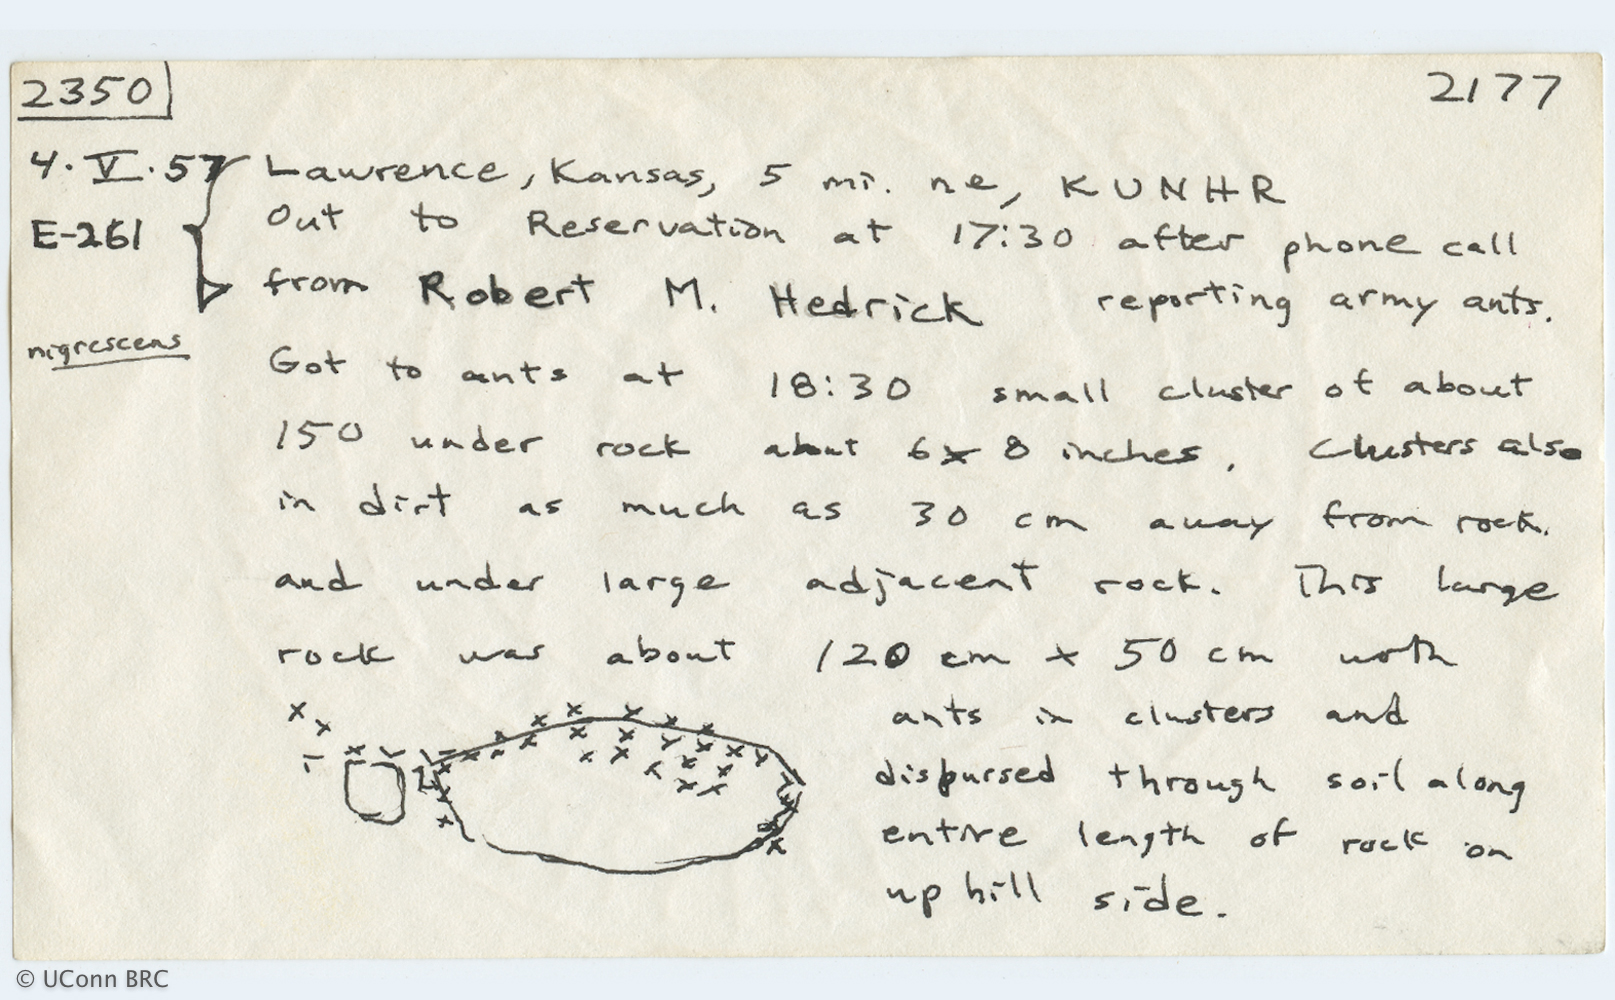 2350 2177
4·V·57 Lawrence, Kansas, 5 mi. ne, KUNHR
E-261 Out to Reservation at 17:30 after phone call
from Robert M. Hedrick reporting army ants.
nigrescens
Got to ants at 18:30 small cluster of about
150 under rock about 6 x 8 inches. Clusters also
in dirt as much as 30 cm away from rock.
and under large adjacent rock. This large
rock was about 120 cm x 50 cm with
ants in clusters and
dispursed through soil along
entire length of rock on
up hill side.
© UConn BRC